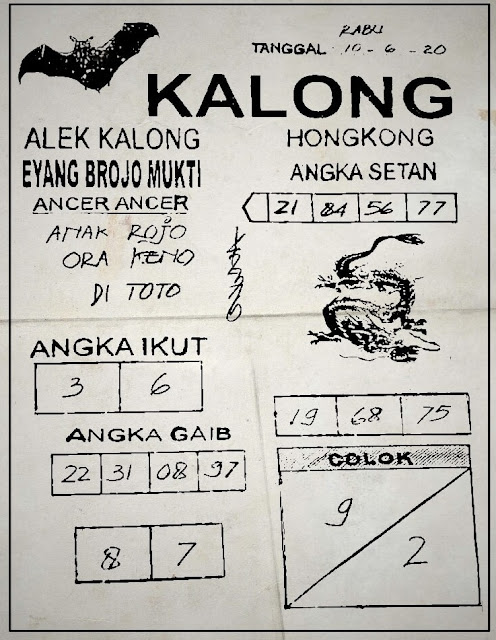 RABU
TANGGAL 10 - 6 - 20
KALONG
ALEK KALONG
EYANG BROJO MUKTI
ANCER ANCER
ANAK ROJO
ORA KENO
DI TOTO
HONGKONG
ANGKA SETAN
21 84 56 77
ANGKA IKUT
3 6
ANGKA GAIB
22 31 08 97
8 7
19 68 75
COLOK
9
2